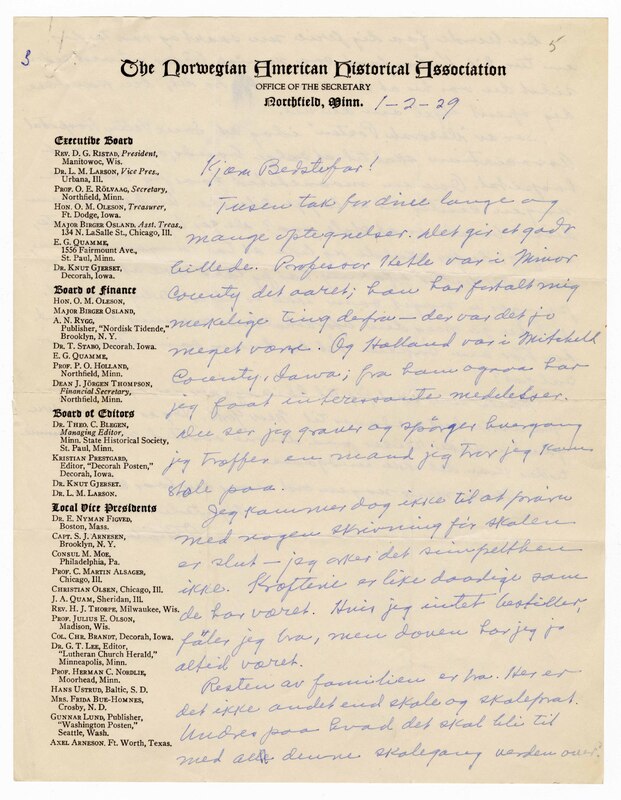 3
5
The Norwegian American Historical Association
OFFICE OF THE SECRETARY
Northfield, Minn. 1-2-29
Executive Board
REV. D. G. RISTAD, President,
Manitowoc, Wis.
DR. L. M. LARSON, Vice Pres.,
Urbana, Ill.
PROF. O. E. RÖLVAAG, Secretary,
Northfield, Minn.
HON. O. M. OLESON, Treasurer,
Ft. Dodge, Iowa.
MAJOR BIRGER OSLAND, Asst. Treas.,
134 N. LaSalle St., Chicago, Ill.
E. G. QUAMME,
1556 Fairmount Ave.,
St. Paul, Minn.
DR. KNUT GJERSET,
Decorah, Iowa.
Board of Finance
HON. O. M. OLESON,
MAJOR BIRGER OSLAND,
A. N. RYGG,
Publisher, "Nordisk Tidende,"
Brooklyn, N. Y.
DR. T. STABO, Decorah, Iowa.
E. G. QUAMME,
PROF. P. O. HOLLAND,
Northfield, Minn.
DEAN J. JÖRGEN THOMPSON,
Financial Secretary,
Northfield, Minn.
Board of Editors
DR. THEO. C. BLEGEN,
Managing Editor,
Minn. State Historical Society,
St. Paul, Minn.
KRISTIAN PRESTGARD,
Editor, "Decorah Posten,"
Decorah, Iowa.
DR. KNUT GJERSET.
DR. L. M. LARSON.
Local Vice Presidents
DR. E. NYMAN FIGVED,
Boston, Mass.
CAPT. S. J. ARNESEN,
Brooklyn, N. Y.
CONSUL M. MOE,
Philadelphia, Pa.
PROF. C. MARTIN ALSAGER,
Chicago, Ill.
CHRISTIAN OLSEN, Chicago, Ill.
J. A. QUAM, Sheridan, Ill.
REV. H. J. THORPE, Milwaukee, Wis.
PROF. JULIUS E. OLSON,
Madison, Wis.
COL. CHR. BRANDT, Decorah, Iowa.
DR. G. T. LEE, Editor,
"Lutheran Church Herald,"
Minneapolis, Minn.
PROF. HERMAN C. NORDLIE,
Moorhead, Minn.
HANS USTRUD, Baltic, S. D.
MRS. FRIDA BUE-HOMNES,
Crosby, N. D.
GUNNAR LUND, Publisher,
"Washington Posten,"
Seattle, Wash.
AXEL ARNESON, Ft. Worth, Texas.
Kjære Bedstefar!
Tusen tak for dine lange og
mange optegnelser. Det gir et godt
billede. Professor Kelle var i Minor
County det aaret; han har fortalt mig
merkelige ting defra – der var det jo
meget værre. Og Holland var i Mitchell
County, Iowa; fra ham ogsaa har
jeg faat interessante meddelelser.
Du ser jeg graver og spörger hvergang
jeg træffer en mand jeg tror jeg kan
stole paa.
Jeg kommer dog ikke til at pröve
med nogen skrivning för skolen
er slut – jeg orker det simpelthen
ikke. Kræfterne er like daarlige som
de har været. Hvis jeg intet bestiller,
föler jeg bra, men doven har jeg jo
altid været.
Resten av familien er bra. Her er
det ikke andet end skole og skoleprat.
Undres paa hvad det skal bli til
med all denne skolegang verden over.